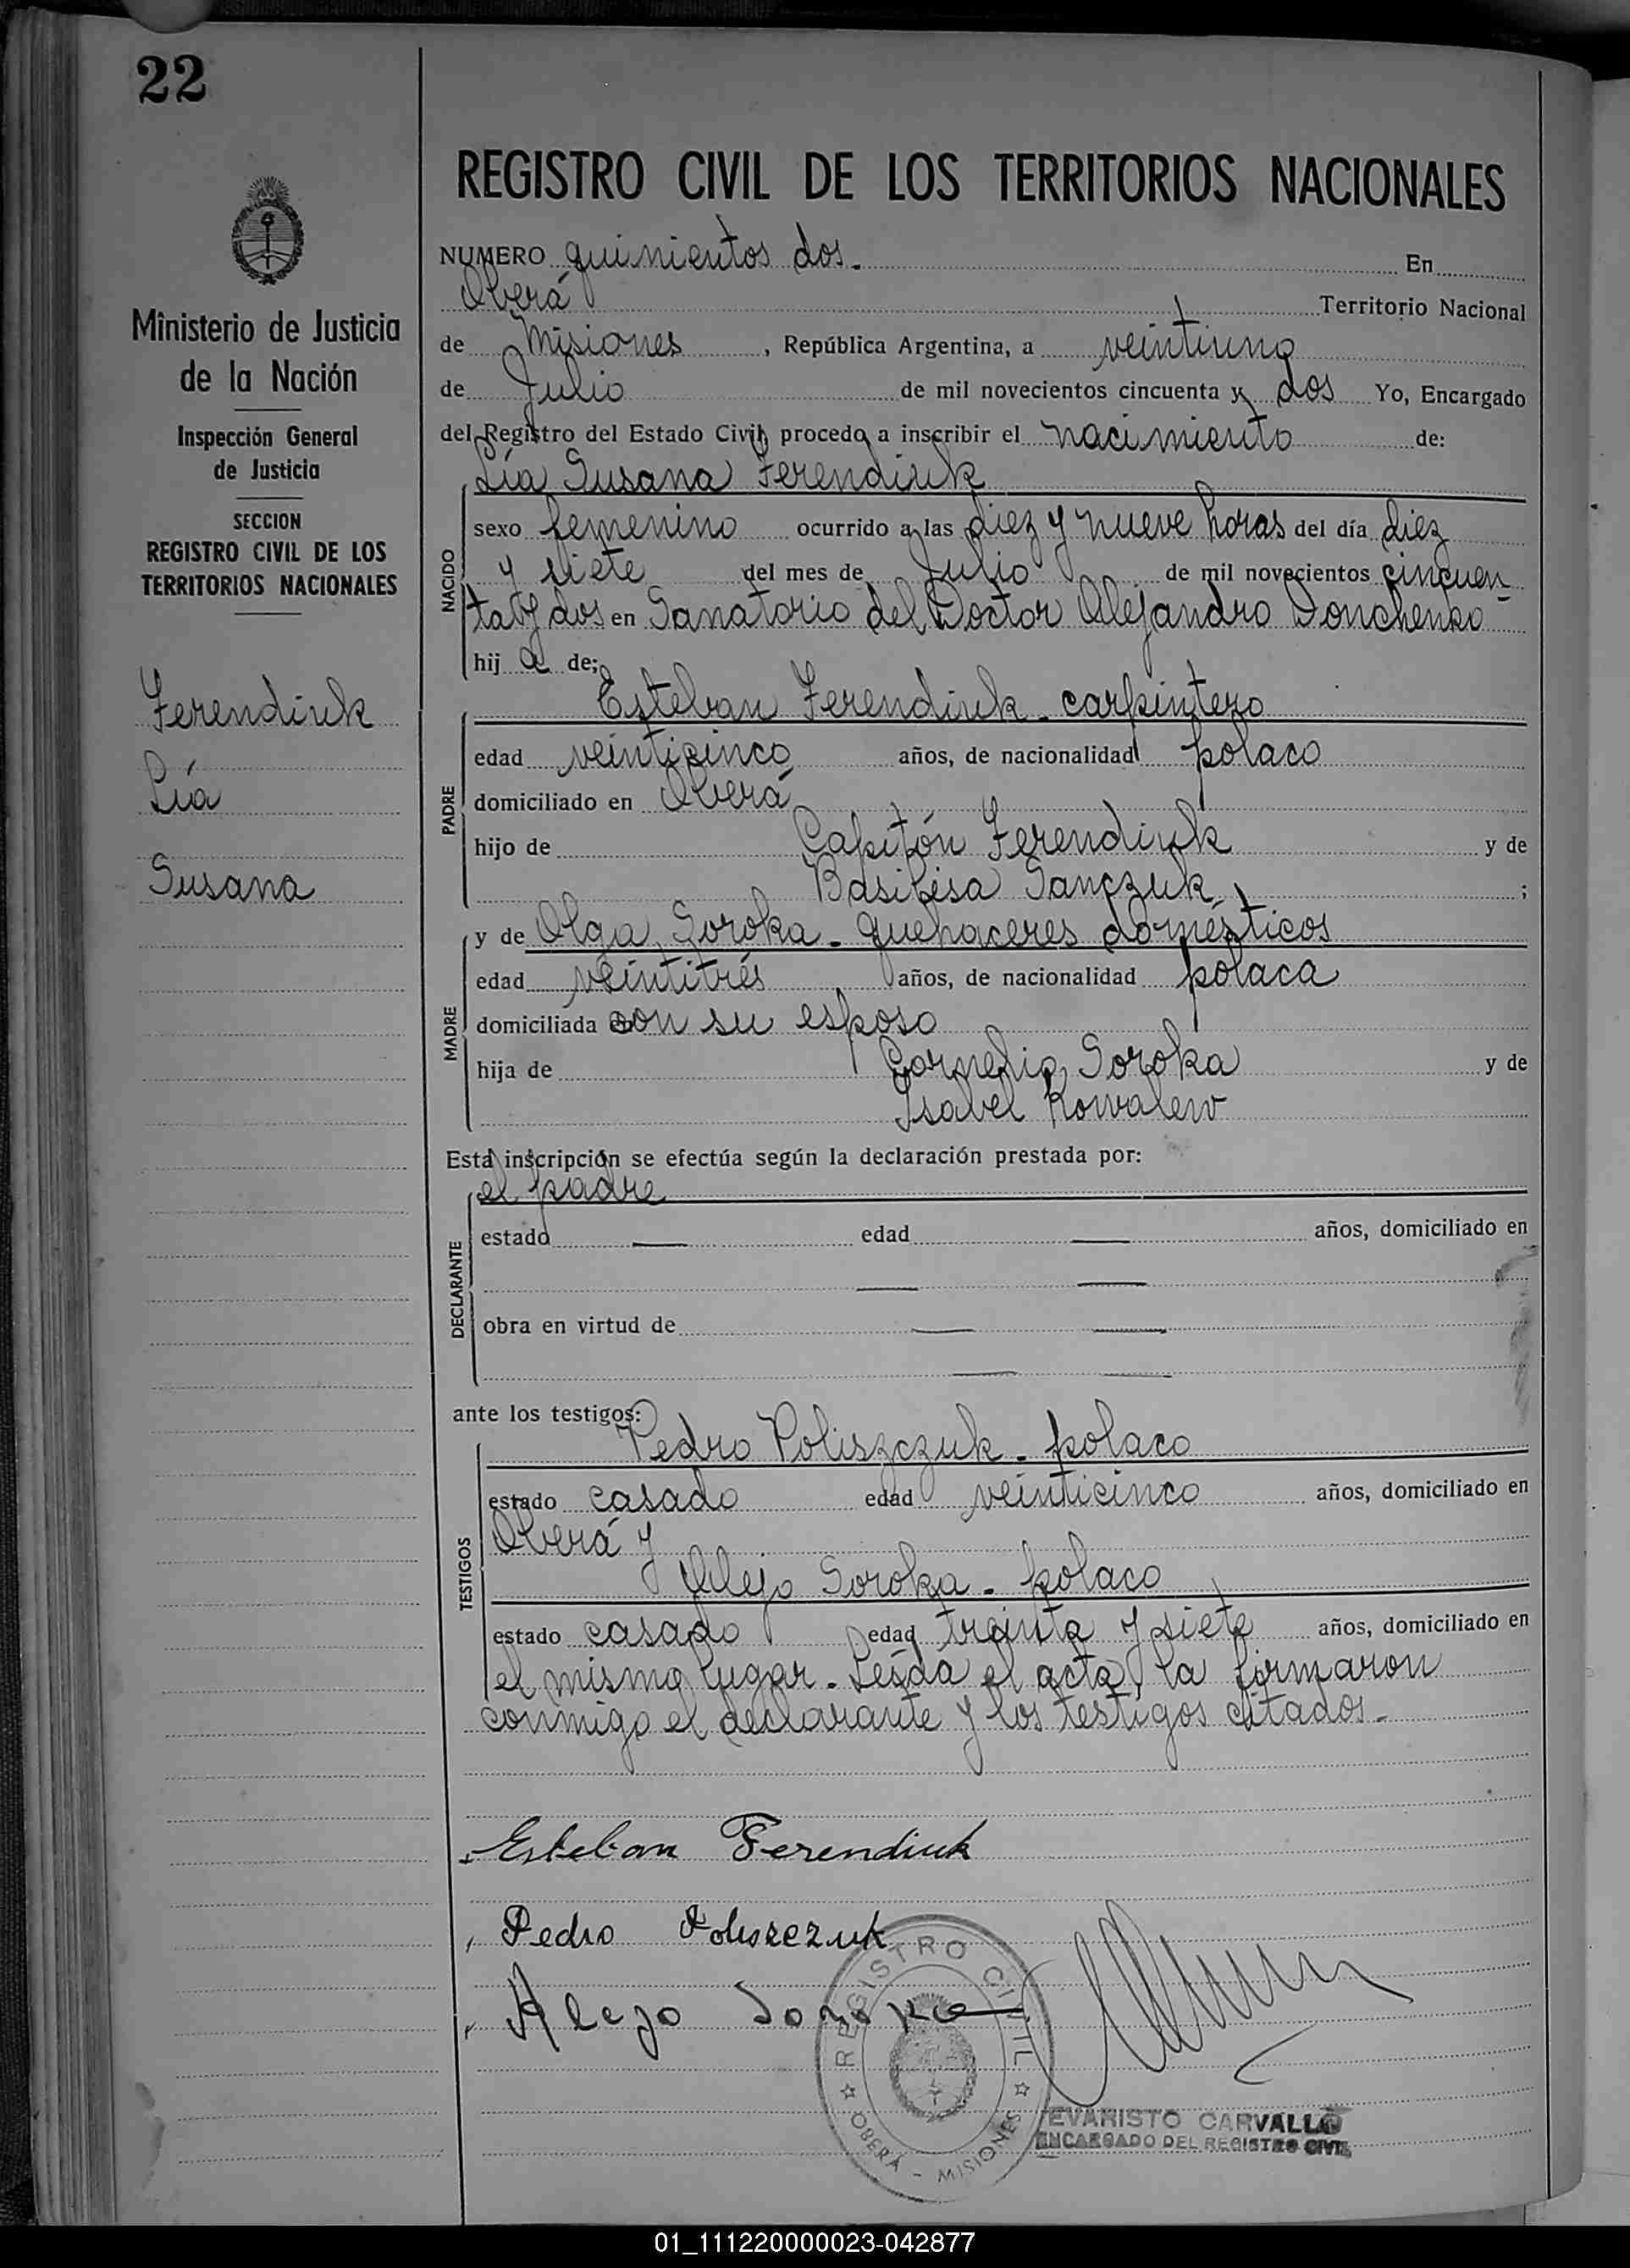 22
Ministerio de Justicia
de la Nación
Inspección General
de Justicia
SECCION
REGISTRO CIVIL DE LOS
TERRITORIOS NACIONALES
Ferendiuk
Lía
Susana
REGISTRO CIVIL DE LOS TERRITORIOS NACIONALES
NUMERO quinientos dos. En
Oberá Territorio Nacional
de Misiones, República Argentina, a veintiuno
de Julio de mil novecientos cincuenta y dos Yo, Encargado
del Registro del Estado Civil, procedo a inscribir el nacimiento de:
Lía Susana Ferendiuk
NACIDO
sexo femenino ocurrido a las diez y nueve horas del día diez
y siete del mes de Julio de mil novecientos cincuen-
ta y dos en Sanatorio del Doctor Alejandro Donchenko
hij a de:
Esteban Ferendiuk - carpintero
PADRE
edad veinticinco años, de nacionalidad polaco
domiciliado en Oberá
hijo de Capitón Ferendiuk y de
Basilisa Sanczuk;
y de Olga Soroka - quehaceres domésticos
MADRE
edad veintitrés años, de nacionalidad polaca
domiciliada con su esposo
hija de Cornelio Soroka y de
Isabel Kowalew
Esta inscripción se efectúa según la declaración prestada por:
el padre
DECLARANTE
estado — edad — años, domiciliado en
— —
obra en virtud de — —
— —
ante los testigos:
Pedro Poliszczuk - polaco
TESTIGOS
estado casado edad veinticinco años, domiciliado en
Oberá y
Alejo Soroka - polaco
estado casado edad treinta y siete años, domiciliado en
el mismo lugar. Leída el acta, la firmaron
conmigo el declarante y los testigos citados.-
Esteban Ferendiuk
Pedro Poliszczuk
Alejo Soroka
REGISTRO CIVIL
OBERÁ - MISIONES
EVARISTO CARVALLO
ENCARGADO DEL REGISTRO CIVIL
01_111220000023-042877